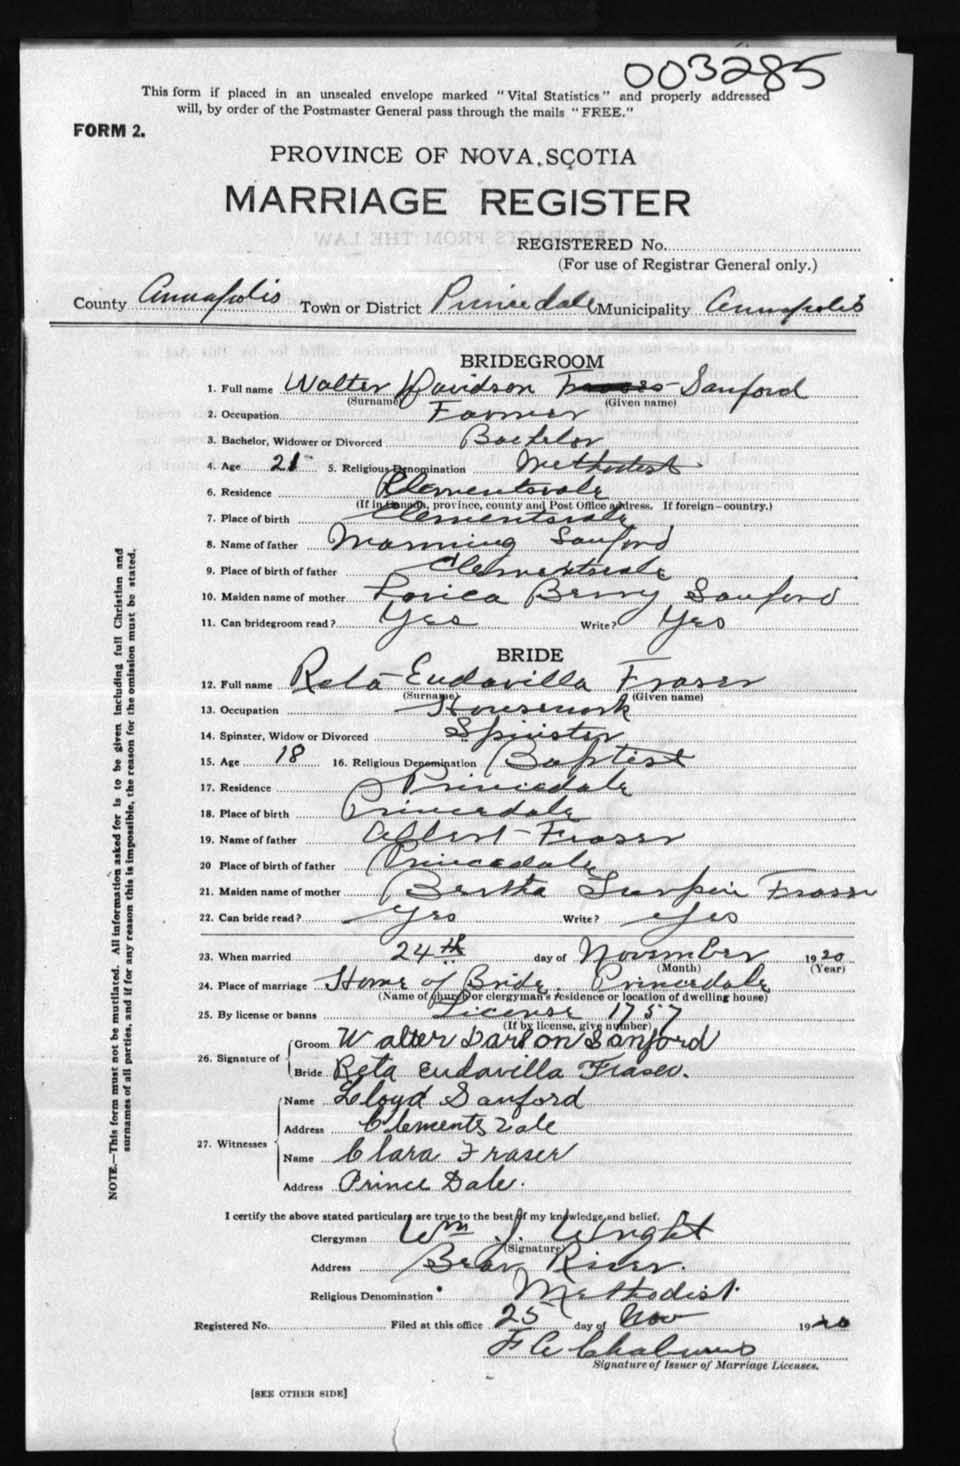 003285
This form if placed in an unsealed envelope marked "Vital Statistics" and properly addressed
will, by order of the Postmaster General pass through the mails "FREE."
FORM 2.
PROVINCE OF NOVA SCOTIA
MARRIAGE REGISTER
REGISTERED No.
(For use of Registrar General only.)
County Annapolis Town or District Princedale Municipality Annapolis
BRIDEGROOM
1. Full name Walter Davidson Sanford
(Surname) (Given name)
2. Occupation Farmer
3. Bachelor, Widower or Divorced Bachelor
4. Age 21 5. Religious Denomination Methodist
6. Residence Clementsvale
(If in Canada, province, county and Post Office address. If foreign—country.)
7. Place of birth Clementsvale
8. Name of father Manning Sanford
9. Place of birth of father Clementsvale
10. Maiden name of mother Berry Sanford
11. Can bridegroom read? Yes Write? Yes
BRIDE
12. Full name Reta Eudavilla Fraser
(Surname) (Given name)
13. Occupation Housework
14. Spinster, Widow or Divorced Spinster
15. Age 18 16. Religious Denomination Baptist
17. Residence Princedale
18. Place of birth Princedale
19. Name of father Albert Fraser
20 Place of birth of father Princedale
21. Maiden name of mother Bertha Turpin Fraser
22. Can bride read? Yes Write? Yes
23. When married 24th day of November 1920
(Month) (Year)
24. Place of marriage Home of Bride, Princedale
(Name of church or clergyman's residence or location of dwelling house)
25. By license or banns License 1757
(If by license, give number)
26. Signature of
Groom Walter Sanford
Bride Reta Eudavilla Fraser.
27. Witnesses
Name Lloyd Sanford
Address Clements Vale
Name Clara Fraser
Address Prince Dale.
I certify the above stated particulars are true to the best of my knowledge and belief.
Clergyman Wm. J. Wright
(Signature)
Address Bear River.
Religious Denomination Methodist.
Registered No. Filed at this office 25 day of Nov 1920
F C
Signature of Issuer of Marriage Licenses.
[SEE OTHER SIDE]
NOTE.—This form must not be mutilated. All information asked for is to be given including full Christian and
surnames of all parties, and if for any reason this is impossible, the reason for the omission must be stated.